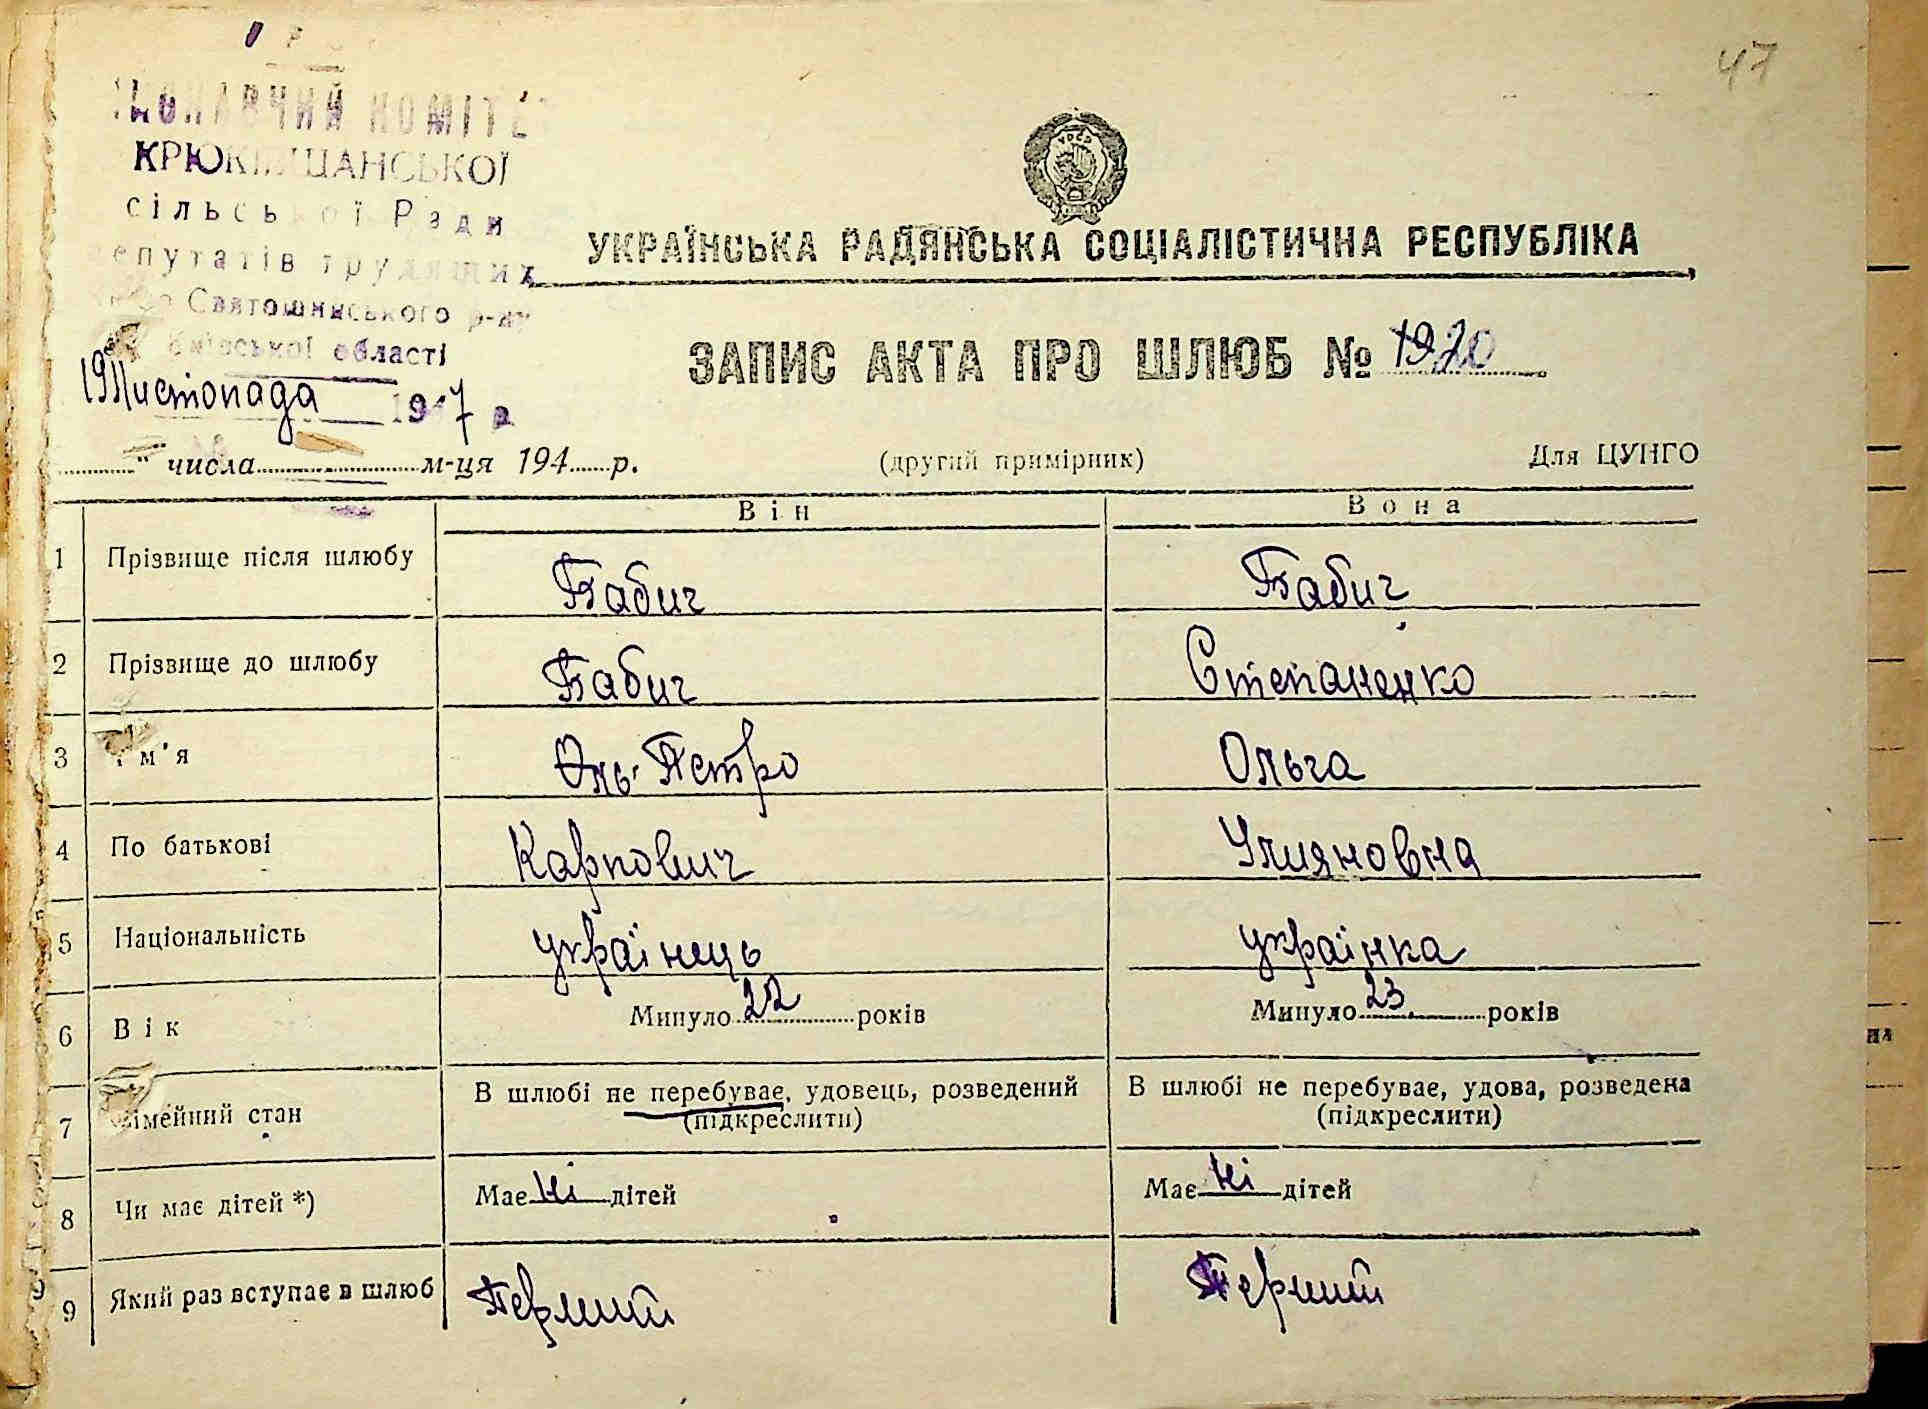 47
КОМІТЕ
КРЮК ЩАНСЬКОЇ
сільської Ради
епутатів трудящих
Святошинського р-ну
Київської області
19 Листопада 1947 р.
УКРАЇНСЬКА РАДЯНСЬКА СОЦІАЛІСТИЧНА РЕСПУБЛІКА
ЗАПИС АКТА ПРО ШЛЮБ №
" числа м-ця 194 р.
(другий примірник)
Для ЦУНГО
Він Вона
1 Прізвище після шлюбу Бабич Бабич
2 Прізвище до шлюбу Бабич Степаненко
3 м'я Оль Петро Ольга
4 По батькові Карпович Улияновна
5 Національність українець українка
6 Вік Минуло 22 років Минуло 23 років
7 імейний стан В шлюбі не перебуває, удовець, розведений (підкреслити) В шлюбі не перебуває, удова, розведена (підкреслити)
8 Чи має дітей *) Має ні дітей Має ні дітей
9 Який раз вступає в шлюб Перший Перший